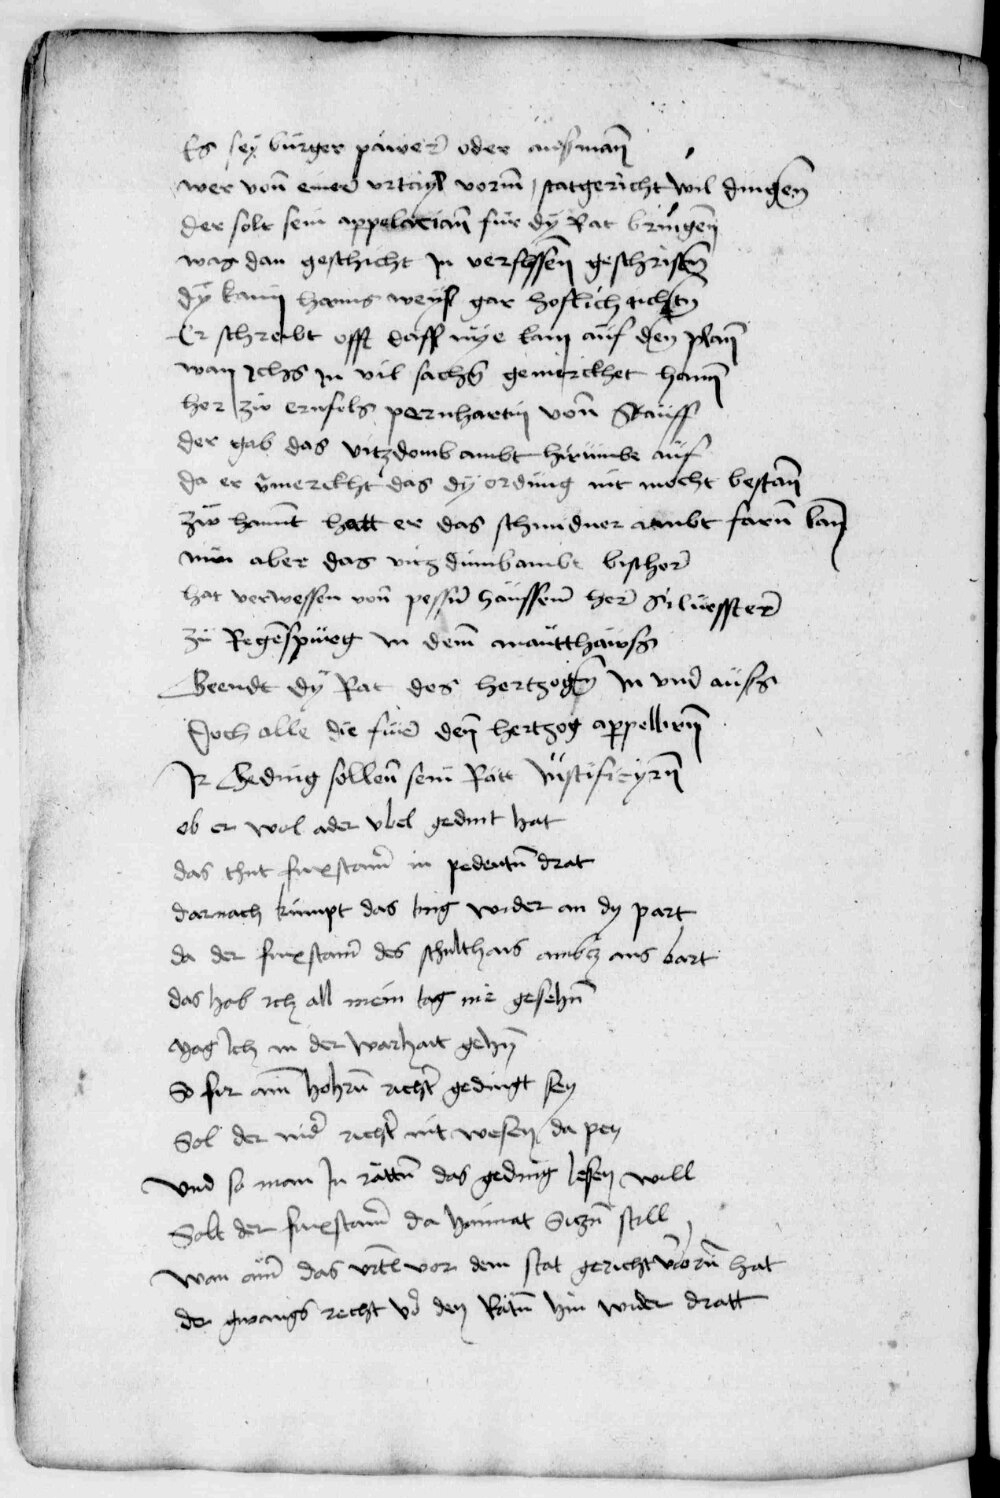 Es seÿ bürger päwer oder aussman̄
wer von̄ einer vrtayl vorm statgericht wil dingen
der solt sein appelacian̄ für dÿ Rat bringen̄
was dan geschicht In verslossen̄ geschrifften
dÿ kann hanns weysß gar hoflich tichtn̄
Er schreibt offt dasß nye kam auf den plan̄
wan ichs in vil sachn̄ gemerckhet han̄
her zw ernfels pernhartin von̄ Stauff
der gab das vitzdomb ambt hirumbe auf
da er vermerckht das dÿ ordnūg nit mocht bestan̄
zw hannt hett er das schmidner ambt farn̄ lan̄
nün aber das vitzdumbambt bischer
hat verwessen von hausß her Siluesster
zü Regenspurg in dem mautthawss
Wendt dÿ Rat des hertzogen in vnd auss
Doch alle die für den̄ hertzog appellirn̄
Ir Geding sollen̄ sein Rätt Iustificyrn̄
ob er wol ader vbel gedint hat
das thut fuxstain̄ in drat
darnach kumpt das ting wider an dy part
da der fuxstain̄ des schulthais ambtz aus bart
das hab ich all mein tag nie gesehn̄
mag Ich in der warhait gehn̄
So für ain̄ hohrn̄ richter gedingt sey
Sol der nider richter nit wesen da pey
Vnd so man In rättn̄ das geding lesen will
Solt der fuxstain̄ da haimat Sitzn̄ still
Wan ain̄ das vrtl vor dem stat gericht verlorn̄ hat
der gwings recht vor den Rätn̄ hin wider dratt